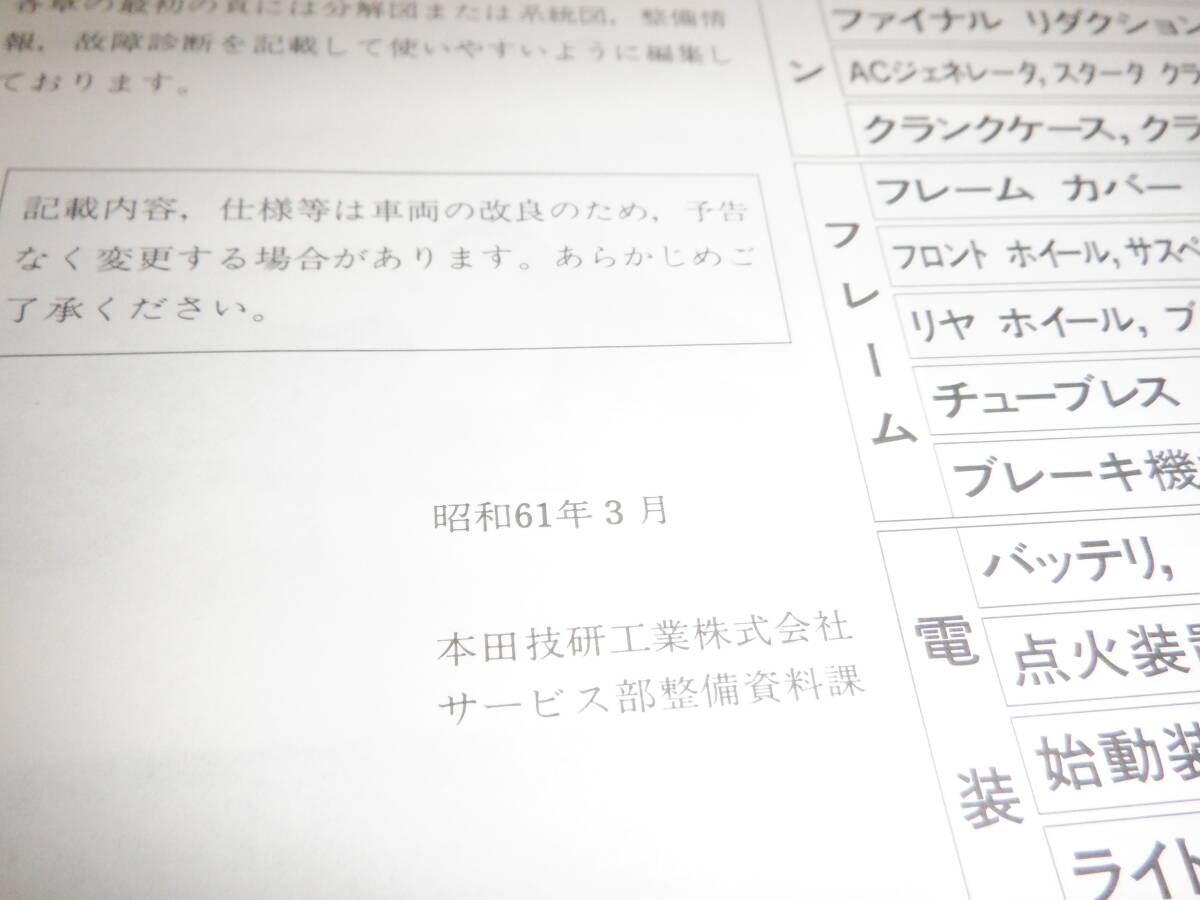 各章の最初の頁には分解図または系統図，整備情
報，故障診断を記載して使いやすいように編集し
ております。
記載内容，仕様等は車両の改良のため，予告
なく変更する場合があります。あらかじめご
了承ください。
昭和61年3月
本田技研工業株式会社
サービス部整備資料課
ン
ファイナル リダクション
ACジェネレータ，スタータ クラ
クランクケース，クラ
フレーム
フレーム カバー
フロント ホイール，サスペ
リヤ ホイール，ブ
チューブレス
ブレーキ機
電装
バッテリ，
点火装置
始動装
ライト